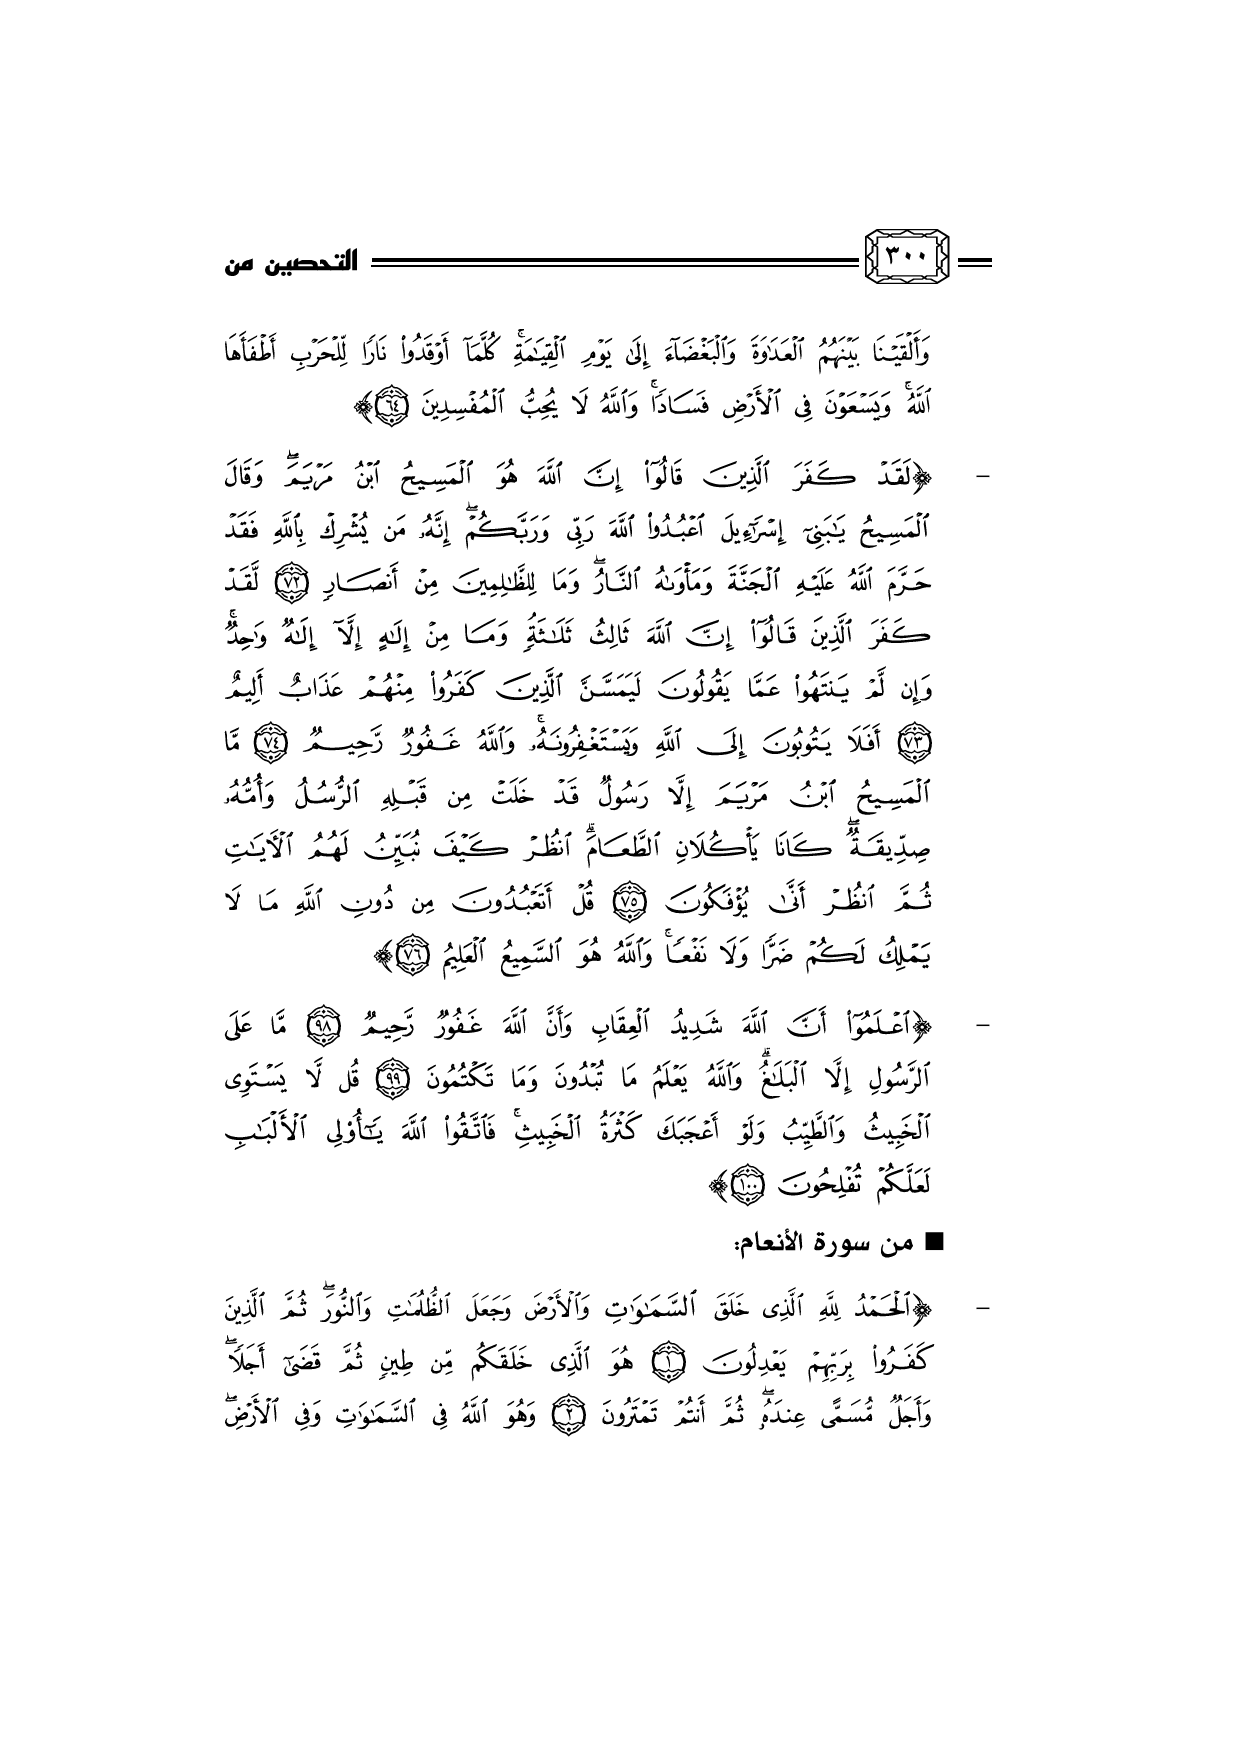 ٣٠٠ التحصين من
وَأَلْقَيْنَا بَيْنَهُمُ ٱلْعَدَٰوَةَ وَٱلْبَغْضَآءَ إِلَىٰ يَوْمِ ٱلْقِيَٰمَةِ ۚ كُلَّمَآ أَوْقَدُوا۟ نَارًا لِّلْحَرْبِ أَطْفَأَهَا
ٱللَّهُ ۚ وَيَسْعَوْنَ فِى ٱلْأَرْضِ فَسَادًا ۚ وَٱللَّهُ لَا يُحِبُّ ٱلْمُفْسِدِينَ ٦٤﴾
- ﴿لَقَدْ كَفَرَ ٱلَّذِينَ قَالُوٓا۟ إِنَّ ٱللَّهَ هُوَ ٱلْمَسِيحُ ٱبْنُ مَرْيَمَ ۖ وَقَالَ
ٱلْمَسِيحُ يَٰبَنِىٓ إِسْرَٰٓءِيلَ ٱعْبُدُوا۟ ٱللَّهَ رَبِّى وَرَبَّكُمْ ۖ إِنَّهُۥ مَن يُشْرِكْ بِٱللَّهِ فَقَدْ
حَرَّمَ ٱللَّهُ عَلَيْهِ ٱلْجَنَّةَ وَمَأْوَىٰهُ ٱلنَّارُ ۖ وَمَا لِلظَّٰلِمِينَ مِنْ أَنصَارٍ ٧٢ لَّقَدْ
كَفَرَ ٱلَّذِينَ قَالُوٓا۟ إِنَّ ٱللَّهَ ثَالِثُ ثَلَٰثَةٍ ۘ وَمَا مِنْ إِلَٰهٍ إِلَّآ إِلَٰهٌ وَٰحِدٌ ۚ
وَإِن لَّمْ يَنتَهُوا۟ عَمَّا يَقُولُونَ لَيَمَسَّنَّ ٱلَّذِينَ كَفَرُوا۟ مِنْهُمْ عَذَابٌ أَلِيمٌ
٧٣ أَفَلَا يَتُوبُونَ إِلَى ٱللَّهِ وَيَسْتَغْفِرُونَهُۥ ۚ وَٱللَّهُ غَفُورٌ رَّحِيمٌ ٧٤ مَّا
ٱلْمَسِيحُ ٱبْنُ مَرْيَمَ إِلَّا رَسُولٌ قَدْ خَلَتْ مِن قَبْلِهِ ٱلرُّسُلُ وَأُمُّهُۥ
صِدِّيقَةٌ ۖ كَانَا يَأْكُلَانِ ٱلطَّعَامَ ۗ ٱنظُرْ كَيْفَ نُبَيِّنُ لَهُمُ ٱلْءَايَٰتِ
ثُمَّ ٱنظُرْ أَنَّىٰ يُؤْفَكُونَ ٧٥ قُلْ أَتَعْبُدُونَ مِن دُونِ ٱللَّهِ مَا لَا
يَمْلِكُ لَكُمْ ضَرًّا وَلَا نَفْعًا ۚ وَٱللَّهُ هُوَ ٱلسَّمِيعُ ٱلْعَلِيمُ ٧٦﴾
- ﴿ٱعْلَمُوٓا۟ أَنَّ ٱللَّهَ شَدِيدُ ٱلْعِقَابِ وَأَنَّ ٱللَّهَ غَفُورٌ رَّحِيمٌ ٩٨ مَّا عَلَى
ٱلرَّسُولِ إِلَّا ٱلْبَلَٰغُ ۗ وَٱللَّهُ يَعْلَمُ مَا تُبْدُونَ وَمَا تَكْتُمُونَ ٩٩ قُل لَّا يَسْتَوِى
ٱلْخَبِيثُ وَٱلطَّيِّبُ وَلَوْ أَعْجَبَكَ كَثْرَةُ ٱلْخَبِيثِ ۚ فَٱتَّقُوا۟ ٱللَّهَ يَٰٓأُو۟لِى ٱلْأَلْبَٰبِ
لَعَلَّكُمْ تُفْلِحُونَ ١٠٠﴾
■ من سورة الأنعام:
- ﴿ٱلْحَمْدُ لِلَّهِ ٱلَّذِى خَلَقَ ٱلسَّمَٰوَٰتِ وَٱلْأَرْضَ وَجَعَلَ ٱلظُّلُمَٰتِ وَٱلنُّورَ ۖ ثُمَّ ٱلَّذِينَ
كَفَرُوا۟ بِرَبِّهِمْ يَعْدِلُونَ ١ هُوَ ٱلَّذِى خَلَقَكُم مِّن طِينٍ ثُمَّ قَضَىٰٓ أَجَلًا ۖ
وَأَجَلٌ مُّسَمًّى عِندَهُۥ ۖ ثُمَّ أَنتُمْ تَمْتَرُونَ ٢ وَهُوَ ٱللَّهُ فِى ٱلسَّمَٰوَٰتِ وَفِى ٱلْأَرْضِ ۖ